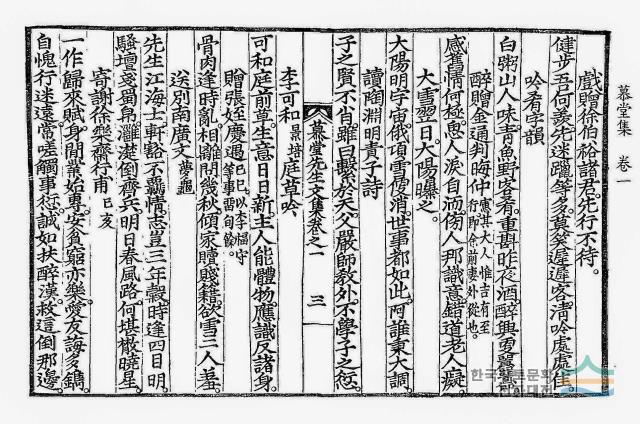 慕堂集 卷一
戲贈徐伯裕諸君先行不待
健步吾何羨先迷躐等多莫笑遲遲客淸吟處處佳
吟肴字韻
白粥山人味靑魚野客肴重斟昨夜酒醉興勇
醉贈金通判晦仲
感舊情何極愚人淚自而傍人那識意錯道老人癡
大雪翌日大陽曝之
大陽明宇宙俄頃雪復消世事都如此阿誰東大調
讀陶淵明責子詩
子之賢不肖雖曰繫於天父嚴師敎外不學子之愆
慕堂先生文集卷之一 三
李可和 景培 庭草吟
可和庭前草生意日日新主人能體物應識反諸身
贈張姪慶遇
骨肉逢時亂相離閱幾秋傾家贖賤籍欲雪三人羞
送別南廣文
先生江海士軒豁不羈情志豈三年縠時逢四日明
騷壇憂蜀帛灘漤倒齋兵明日春風路何堪橄曉星
寄謝徐樂齋行甫 己亥
一作歸來賦身閒業始專安貧窮亦樂愛友誨多鐫
自愧行迷遠常嗟觸事愆誠如扶醉漢救這倒那邊